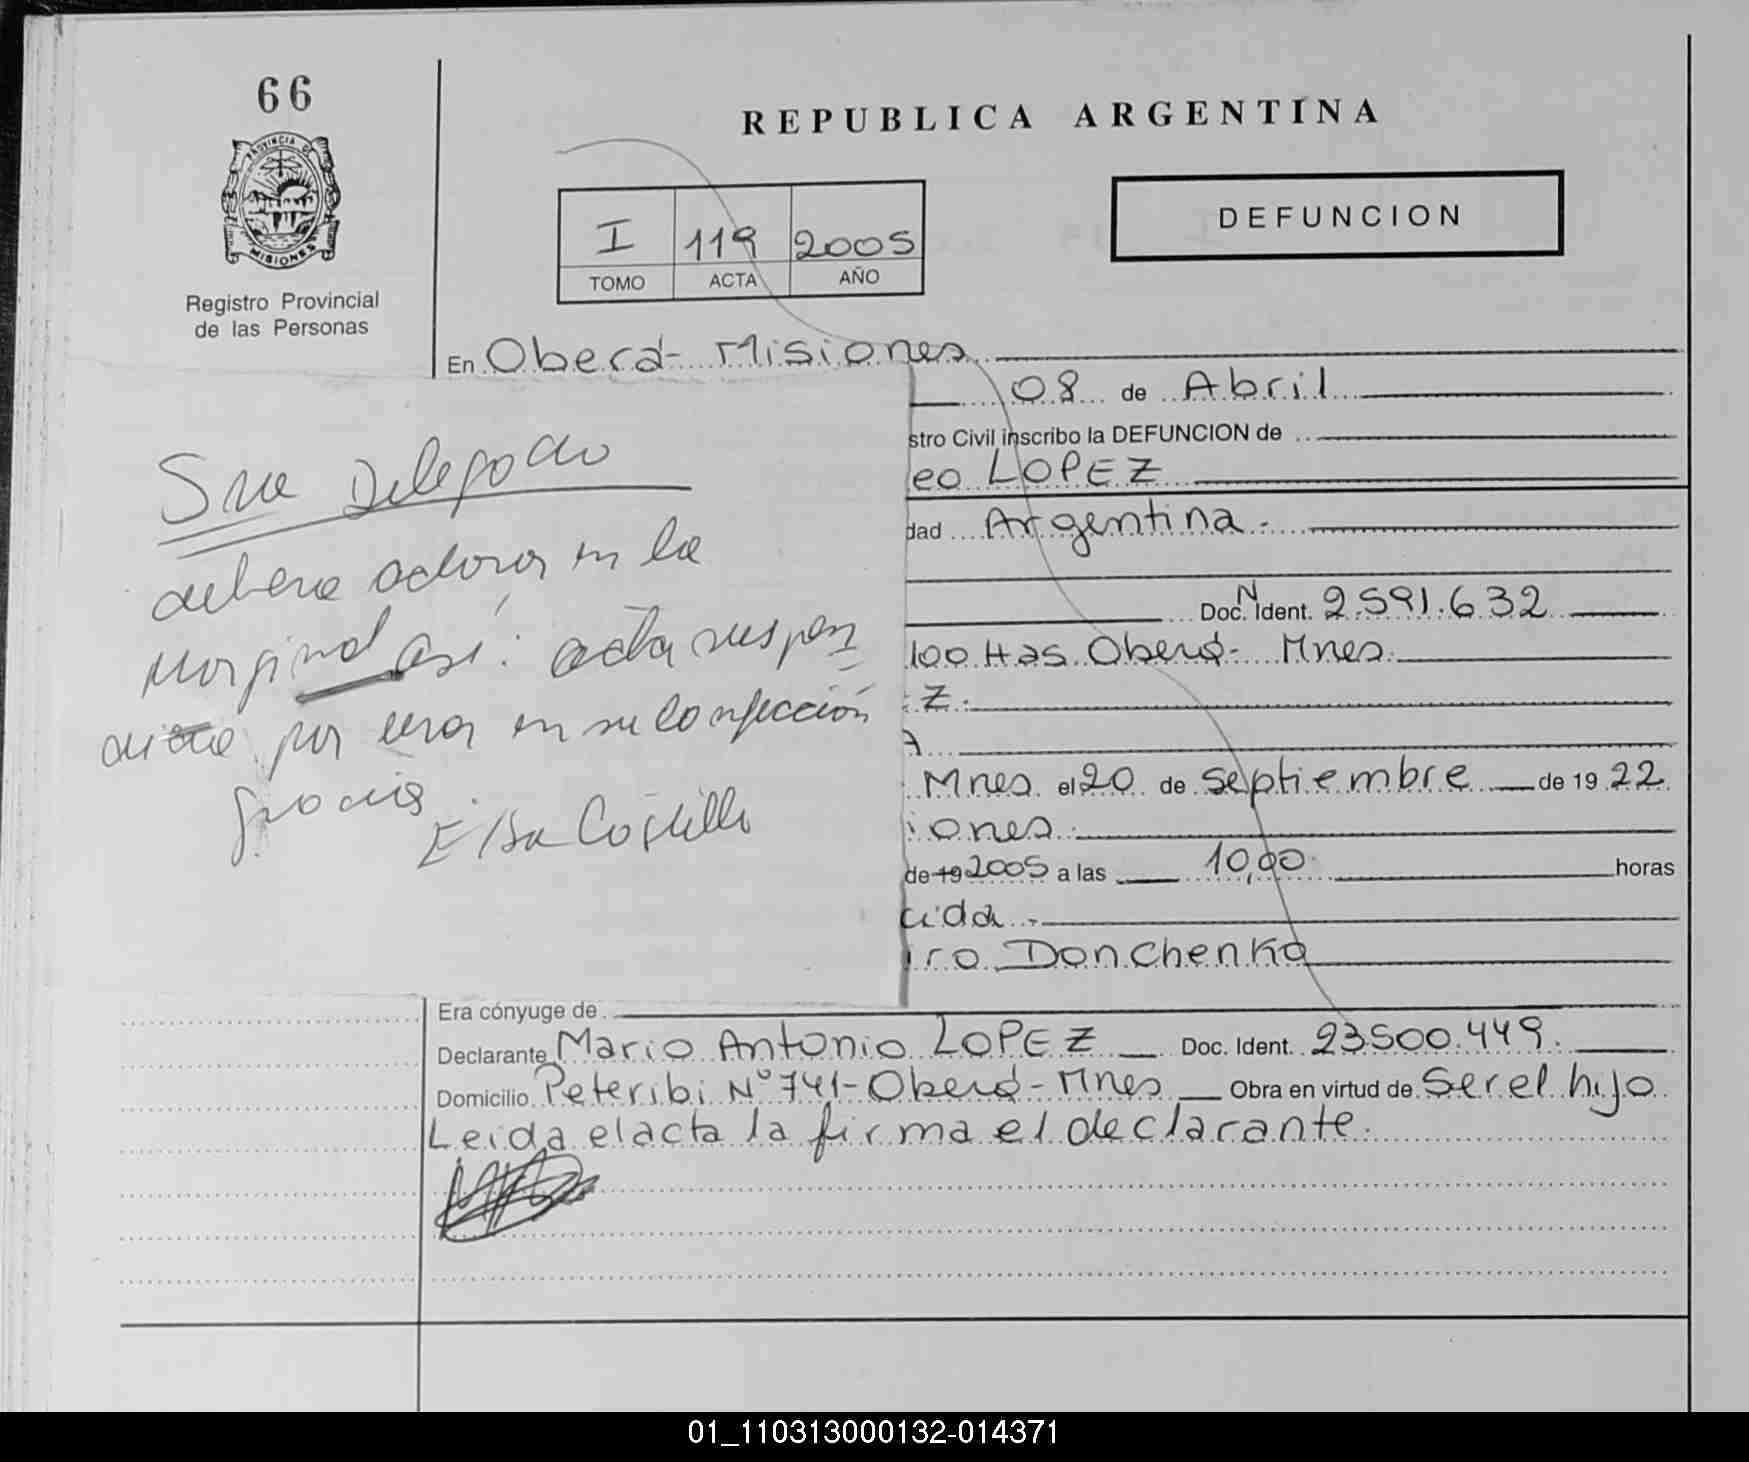 66
REPUBLICA ARGENTINA
PROVINCIA DE
MISIONES
Registro Provincial
de las Personas
I 119 2005
TOMO ACTA AÑO
DEFUNCION
En Oberá - Misiones
08 de Abril
stro Civil inscribo la DEFUNCION de
eo LOPEZ
dad Argentina.-
N
Doc. Ident. 2.591.632
100 Has. Oberá - Mnes.
Z.
A
Mnes el 20 de Septiembre de 19 22
iones.
de 19 2005 a las 10,00 horas
cida.-
iro Donchenko
Sra Delegada
debera aclarar en la
Marginal así: acta suspen
por error en su confección
gracias
Elsa Costillo
Era cónyuge de
Declarante Mario Antonio LOPEZ Doc. Ident. 23.500.449.
Domicilio Peteribi N° 741 - Oberá - Mnes Obra en virtud de Ser el hijo
Leida el acta la firma el declarante.
01_110313000132-014371